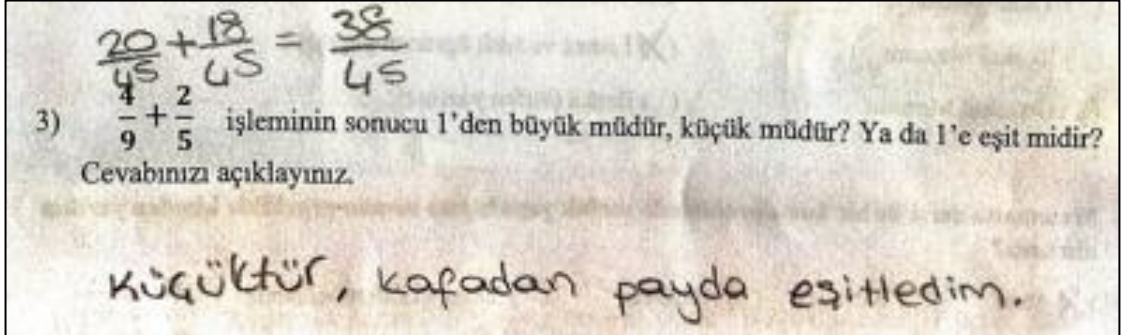 20/45 + 18/45 = 38/45
3) 4/9 + 2/5 işleminin sonucu 1'den büyük müdür, küçük müdür? Ya da 1'e eşit midir?
Cevabınızı açıklayınız.
Küçüktür, kafadan payda eşitledim.